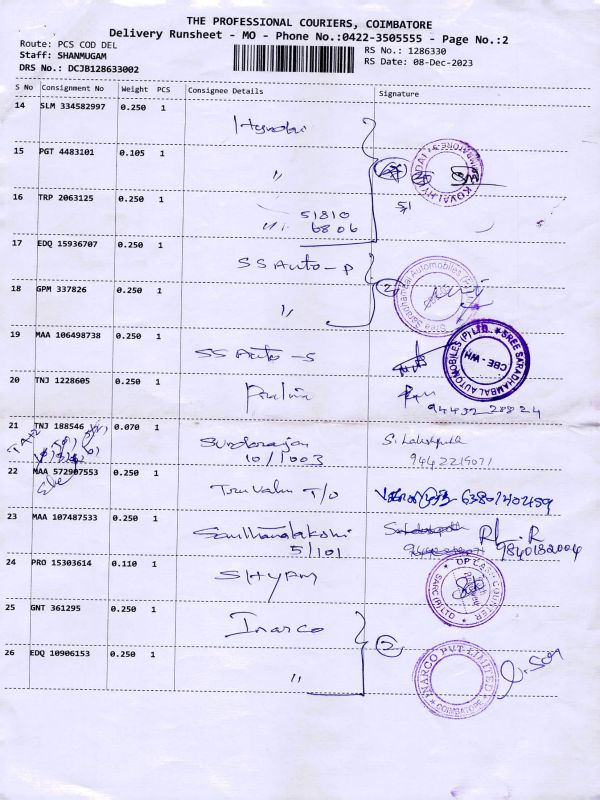 THE PROFESSIONAL COURIERS, COIMBATORE
Delivery Runsheet - MO - Phone No.:0422-3505555 - Page No.:2
Route: PCS COD DEL
RS No.: 1286330
Staff: SHANMUGAM
RS Date: 08-Dec-2023
DRS No.: DCJB128633002
S No Consignment No Weight PCS Consignee Details Signature
14 SLM 334582997 0.250 1
Hyundai
15 PGT 4483101 0.105 1
"
16 TRP 2063125 0.250 1
51810
6806
17 EDQ 15936707 0.250 1
SS Auto-P
18 GPM 337826 0.250 1
" 2
19 MAA 106498738 0.250 1
SS Auto-S
SREE SARADHAMBAL AUTOMOBILES (P) LTD.
CBE - WH
20 TNJ 1228605 0.250 1
94432 28824
21 TNJ 188546 0.070 1
Sundarajan
10/1003
9442219071
22 MAA 572907553 0.250 1
T/O 6380140459
23 MAA 107487533 0.250 1
5/101
9840182004
24 PRO 15303614 0.110 1
SHYAM
25 GNT 361295 0.250 1
Inarco
2
26 EDQ 10906153 0.250 1
"
INARCO PVT LIMITED
COIMBATORE